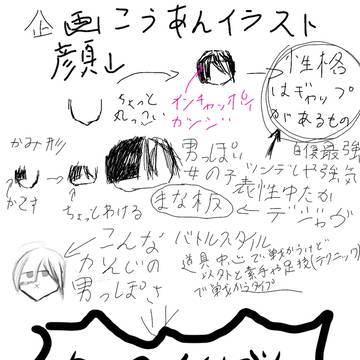 企画こうあんイラスト
顔↓
ちょっと
丸っこい
インキャッポイ
カンジ
性格
はギャップ
があるもの
かみ形
かてす
ちょっとわける
男っぽい
女の子
自後最強
ツンデレや強気
表性中たか
デジャが
まな板
こんな
かんじの
男っぽさ
バトルスタイル
道具中心で戦かうけど
以外と素手や足技(テクニック)
で戦かうタイプ